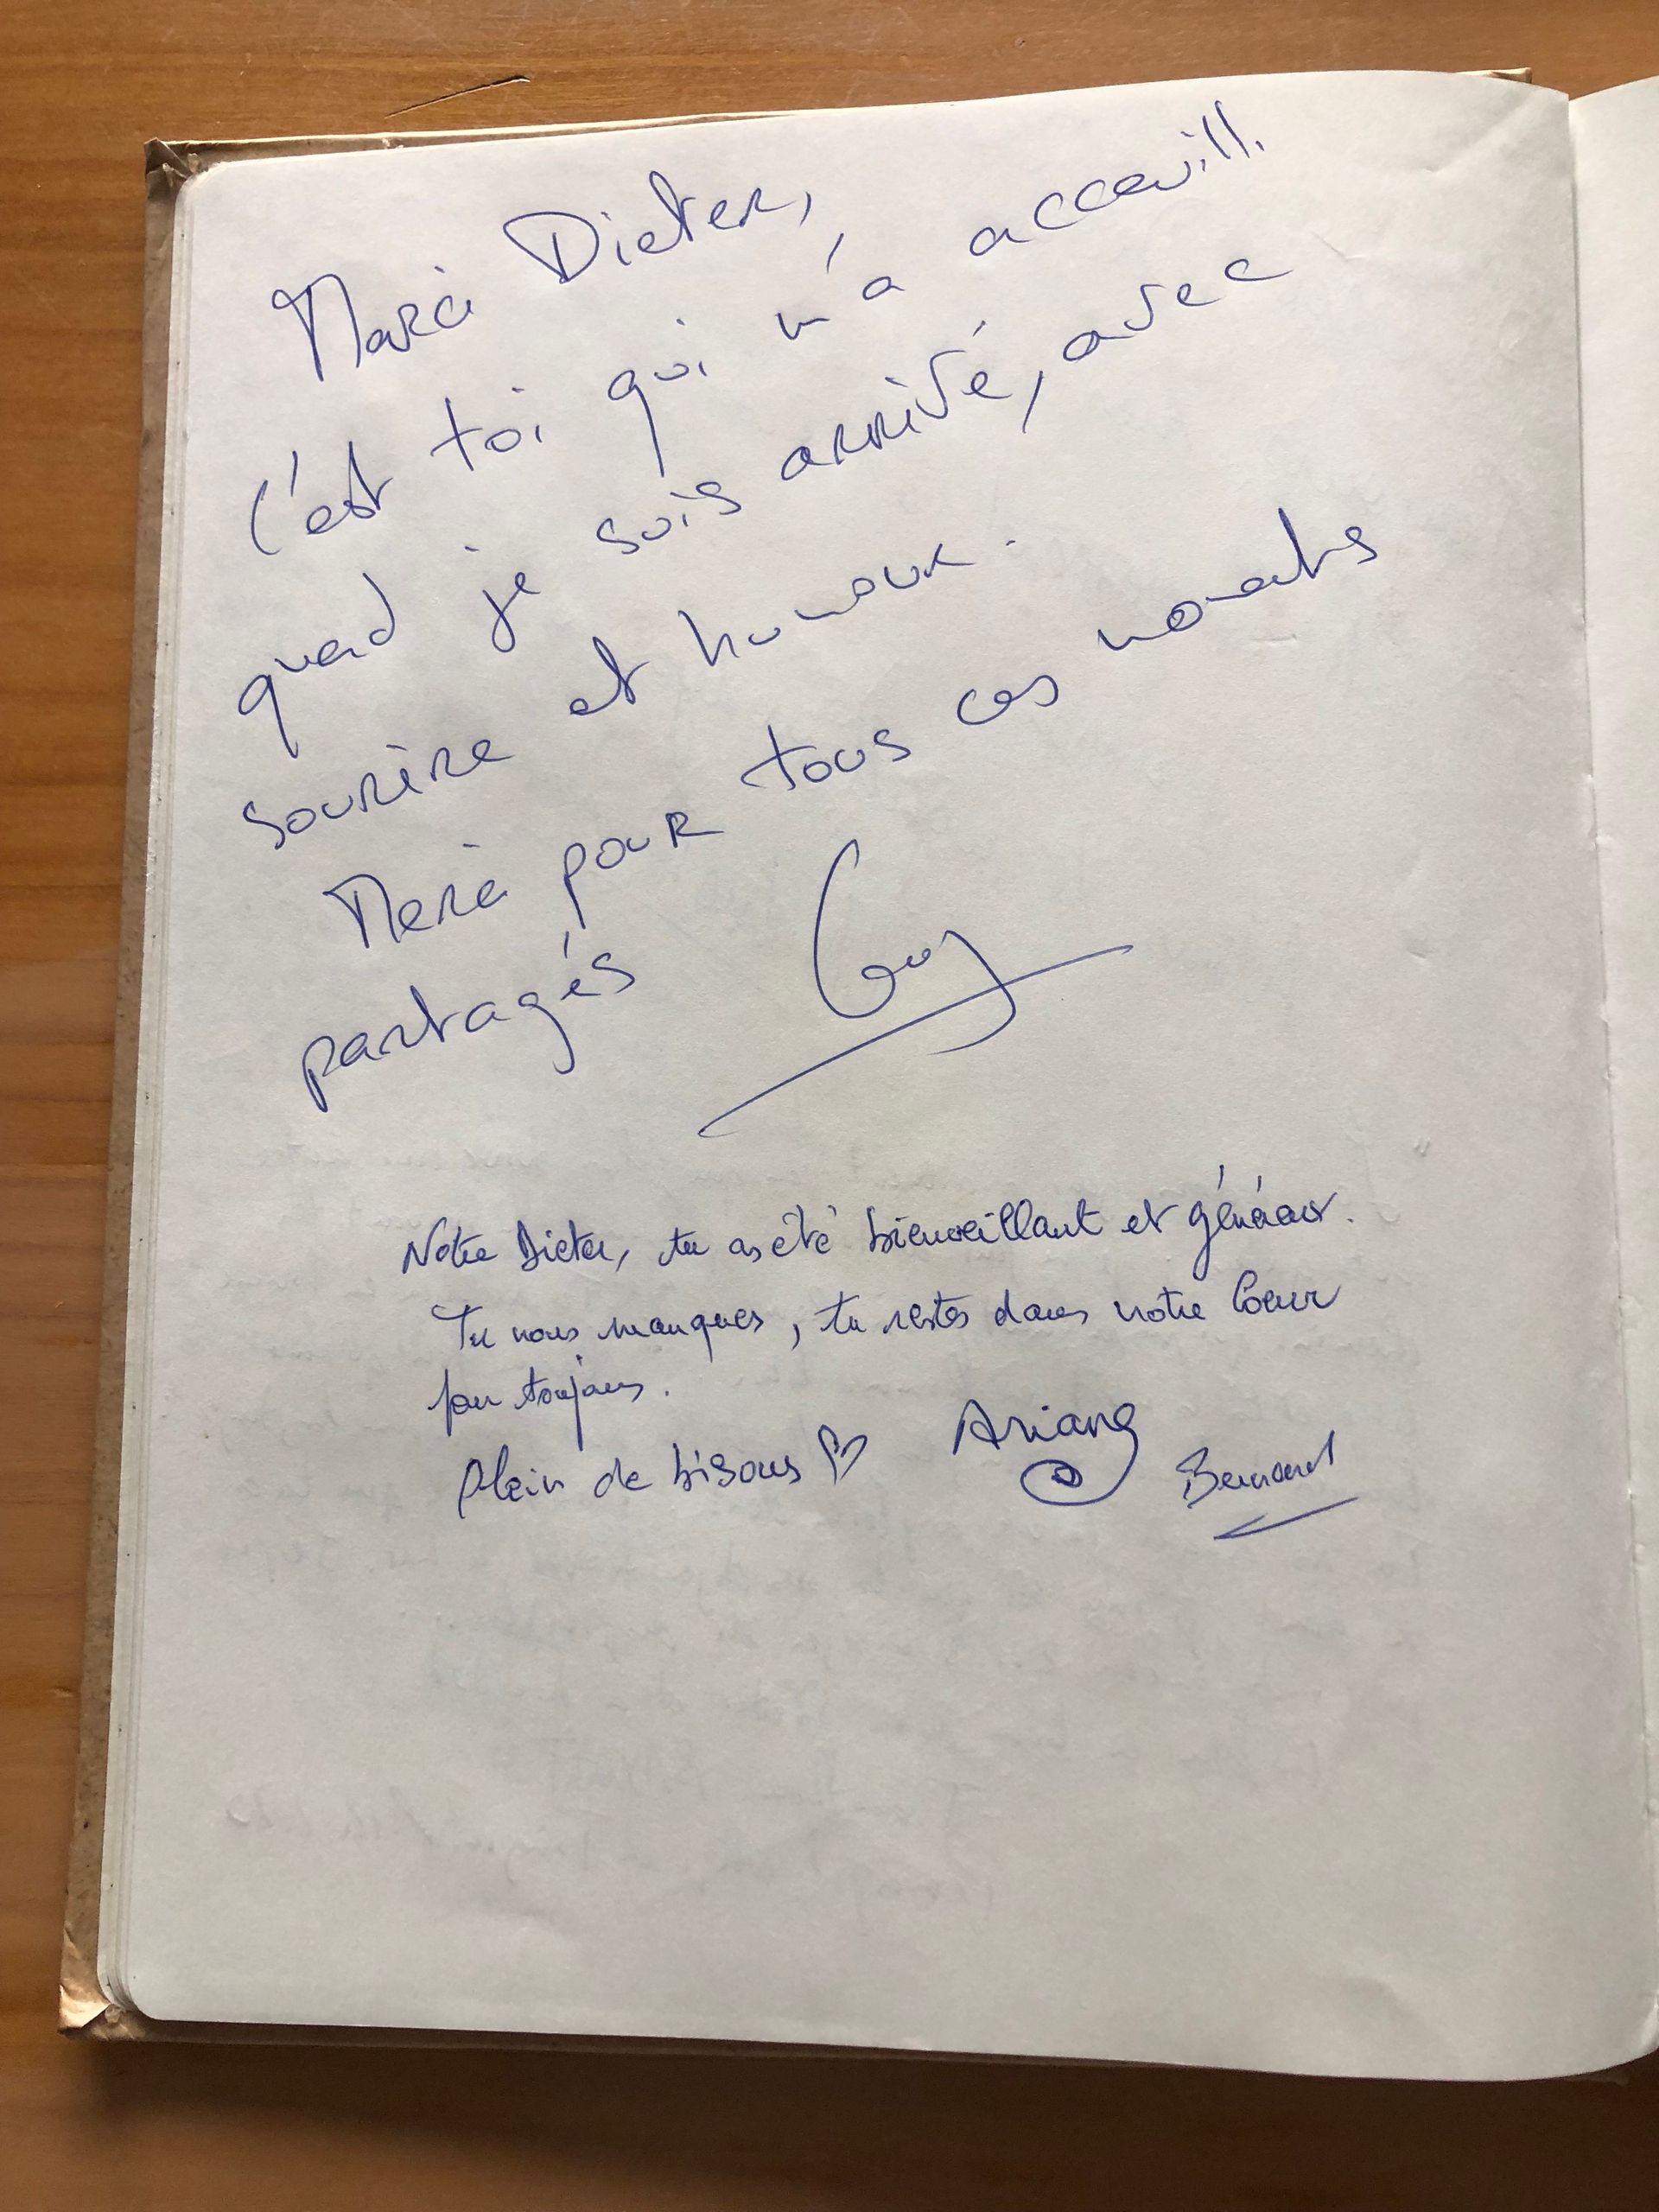 Merci Dieter,
c'est toi qui m'a accueilli
quand je suis arrivé, avec
sourire et humour.
Merci pour tous ces moments
partagés
Guy
Notre Dieter, tu as été bienveillant et généreux.
Tu nous manques, tu restes dans notre Coeur
pour toujours.
Plein de bisous ♡ Ariane
Bernard